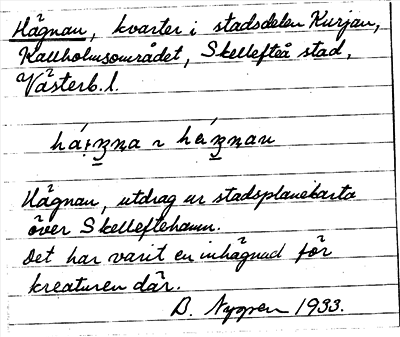 Hägnan, kvarter i stadsdelen Kurjan,
Kallholmsområdet, Skellefteå stad,
Västerb. l.
Hägnan, utdrag ur stadsplanekarta
över Skelleftehamn.
Det har varit en inhägnad för
kreaturen där.
B. Nygren 1933.